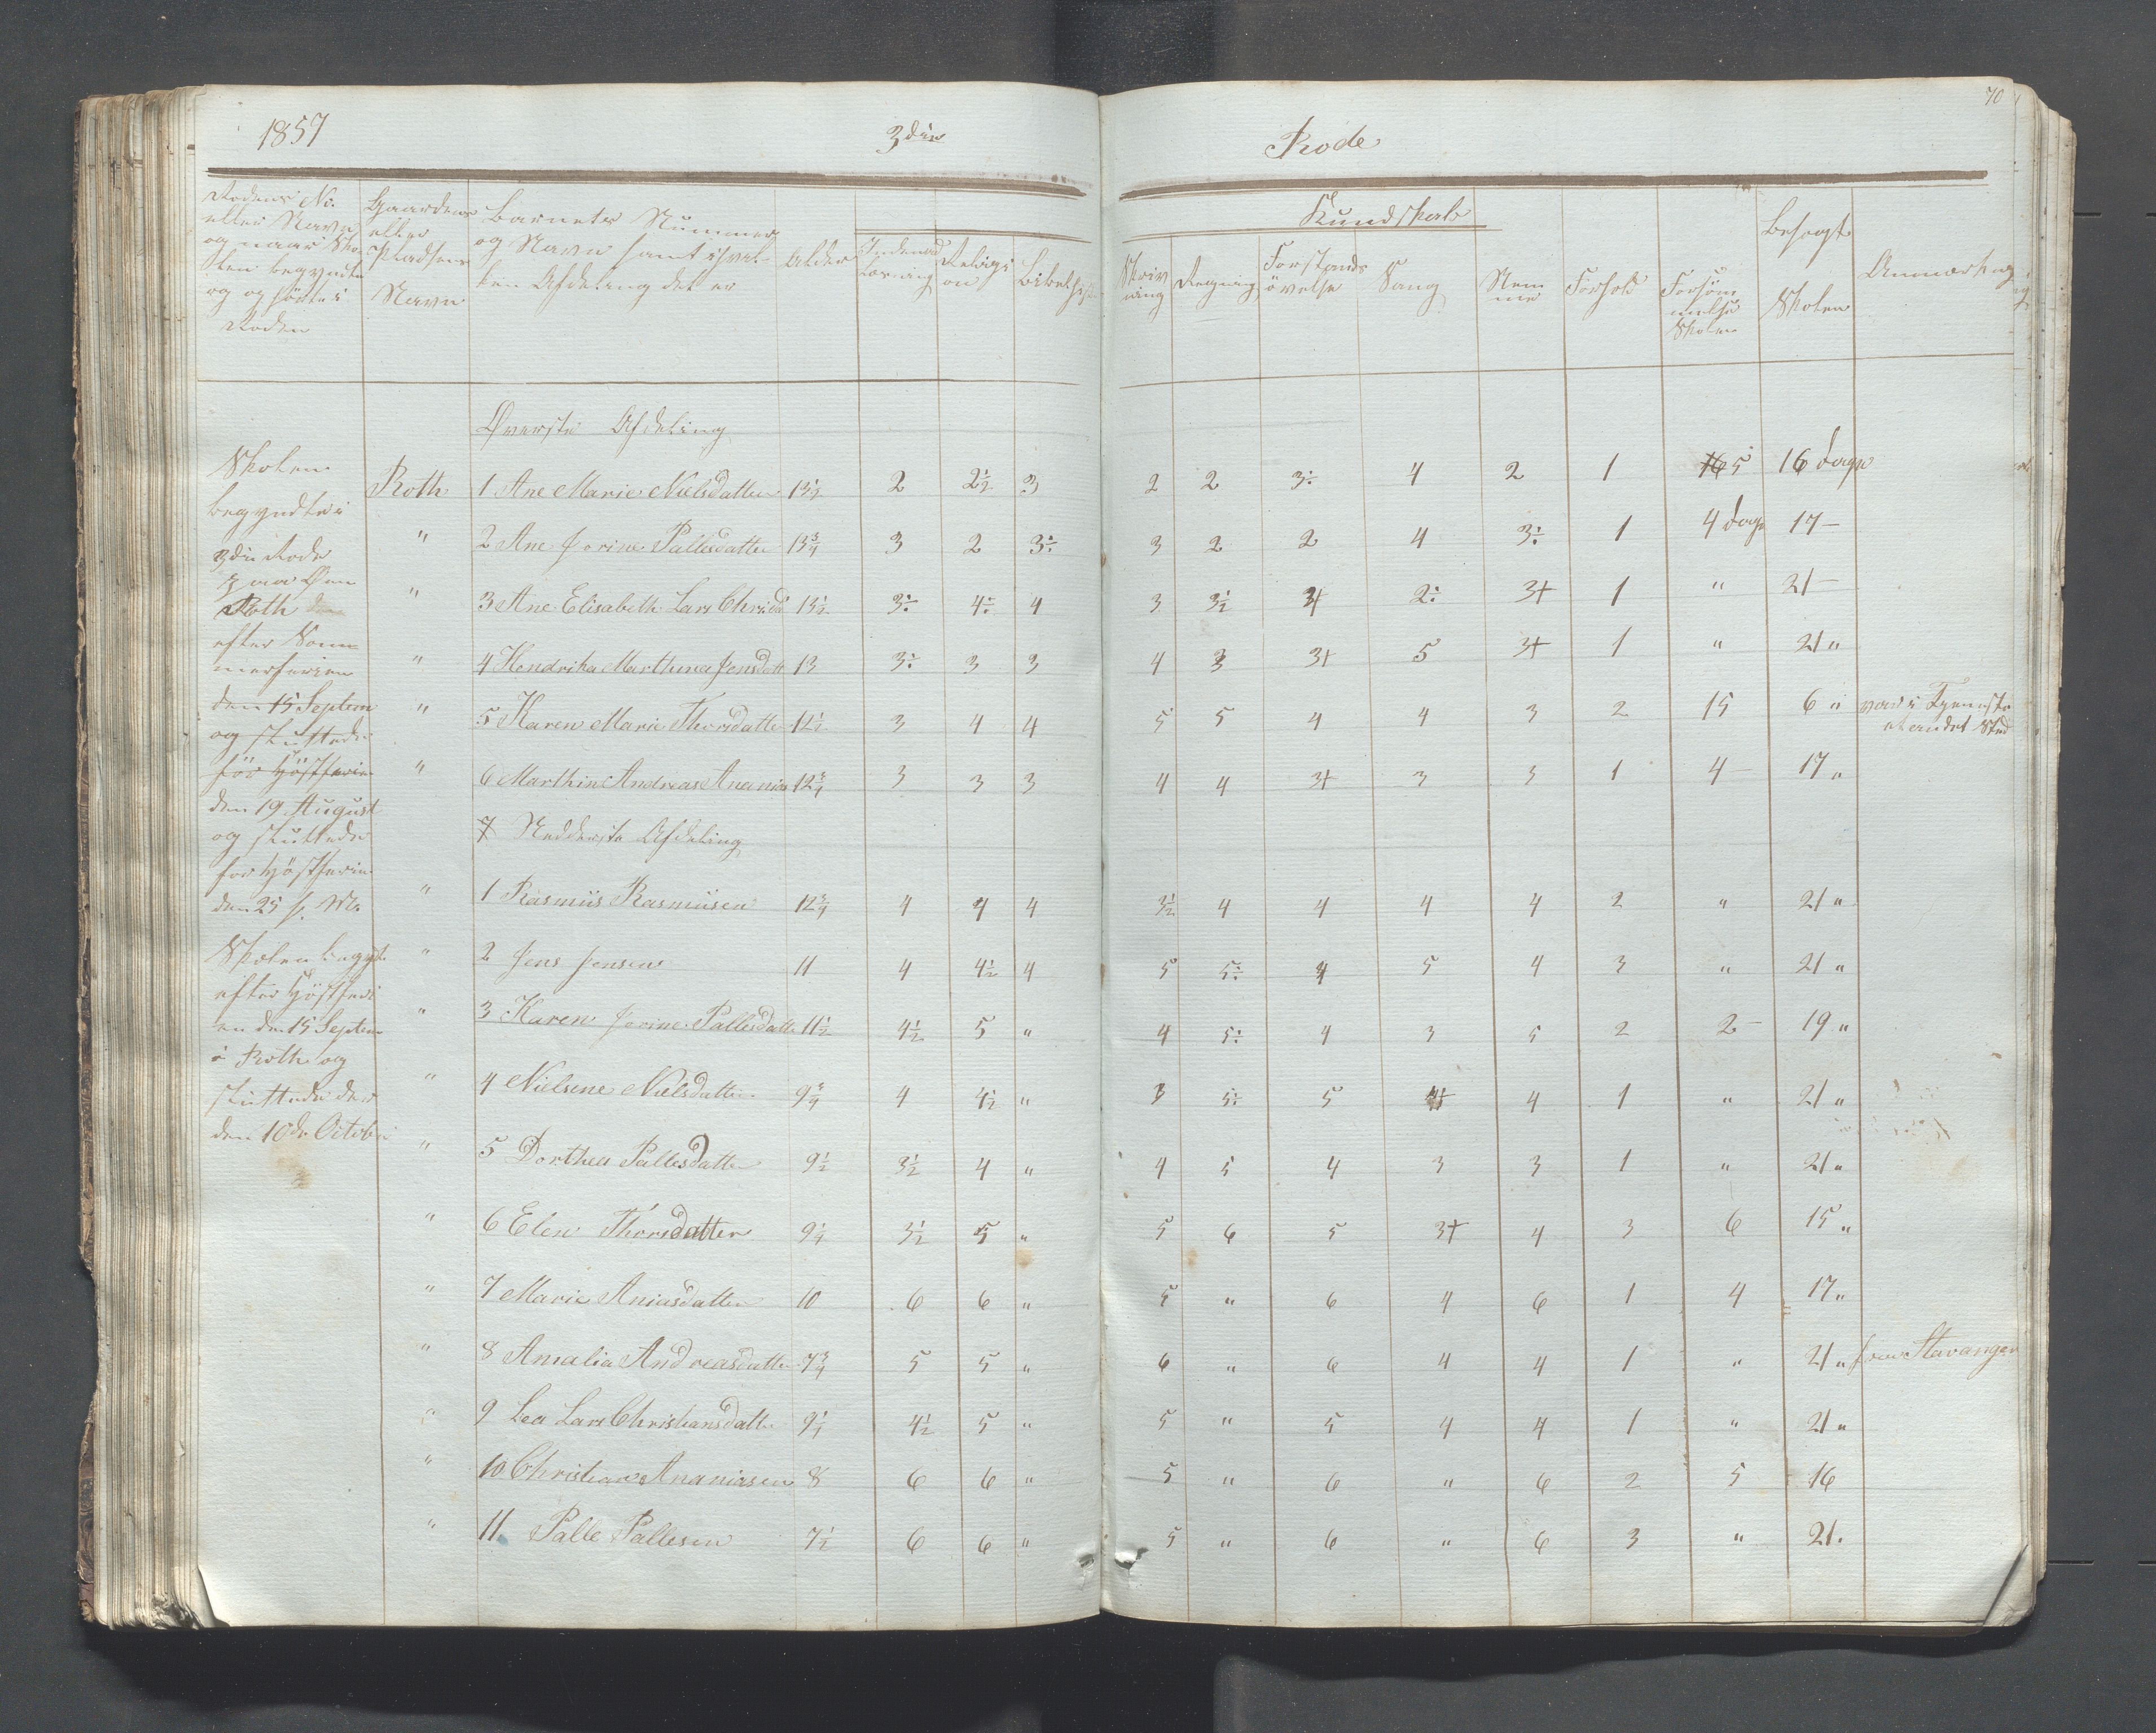 1857 3die Rode 70
Rodens No.
eller Navn
og naar Sko-
len begyndte
og ophörte i
Roden
Gaardens
eller
Pladsens
Navn
Barnets Nummer
og Navn samt i hvil-
ken Afdeling det er
Alder
Indenad
Læsning
Religi
on
Bibelhist
Kundskab
Skriv
ning
Regning
Forstands
övelse
Sang
Nem
me
Forhold
Forsöm
melse
Skolen
Besogt
Skolen
Anmærkning
Øverste Afdeling
Skolen
begyndte i
3die Rode
paa Øen
Roth den
efter Som
merferien
den 15 Septem
og sluttede
för Höstferie
den 19 August
og sluttede
for Höstferie
den 25 s. M.
Skolen begyt
efter Höstferi
en den 15 Septem
i Roth og
sluttede der
den 10de Octob
Roth 1 Ane Marie Nielsdatter 13½ 2 2½ 3 2 2 3÷ 4 2 1 5 16 dage
" 2 Ane Jorine Pallesdatter 13¾ 3 2 3÷ 3 2 2 4 3÷ 1 4 dage 17 –
" 3 Ane Elisabeth Lars Chrisd 13½ 3÷ 4÷ 4 3 3½ 3+ 2÷ 3+ 1 " 21 –
" 4 Hendrika Marthina Jensdatt 13 3÷ 3 3 4 3 3+ 5 3+ 1 " 21 "
" 5 Karen Marie Thorsdatter 12½ 3 4 4 5 5 4 4 3 2 15 6 " var i Tjeneste
et andet Sted
" 6 Marthin Andreas Ananias 12¾ 3 3 3 4 4 3+ 3 3 1 4 – 17 "
7 Nedderste Afdeling
" 1 Rasmus Rasmusen 12¾ 4 4 4 3½ 4 4 4 4 2 " 21 "
" 2 Jens Jensen 11 4 4½ 4 5 5÷ 4 5 4 3 " 21 "
" 3 Karen Jorine Pallesdatter 11½ 4½ 5 " 4 5÷ 4 3 5 2 2 – 19 "
" 4 Nielsine Nielsdatter 9¾ 4 4½ " 3 5÷ 5 4+ 4 1 " 21 "
" 5 Dorthea Pallesdatter 9½ 3½ 4 " 4 5 4 3 3 1 " 21 "
" 6 Elen Thorsdatter 9¼ 3½ 5 " 5 6 5 3+ 4 3 6 15 "
" 7 Marie Aniasdatter 10 6 6 " 5 " 6 4 6 1 4 17 "
" 8 Amalia Andreasdatter 7¾ 5 5 " 6 " 6 4 4 1 " 21 " fra Stavanger
" 9 Lea Lars Christiansdatter 9¼ 4½ 5 " 5 " 5 4 4 1 " 21 "
" 10 Christian Ananiasen 8 6 6 " 5 " 6 " 6 2 5 16
" 11 Palle Pallesen 7½ 6 6 " 5 " 6 " 6 3 " 21.